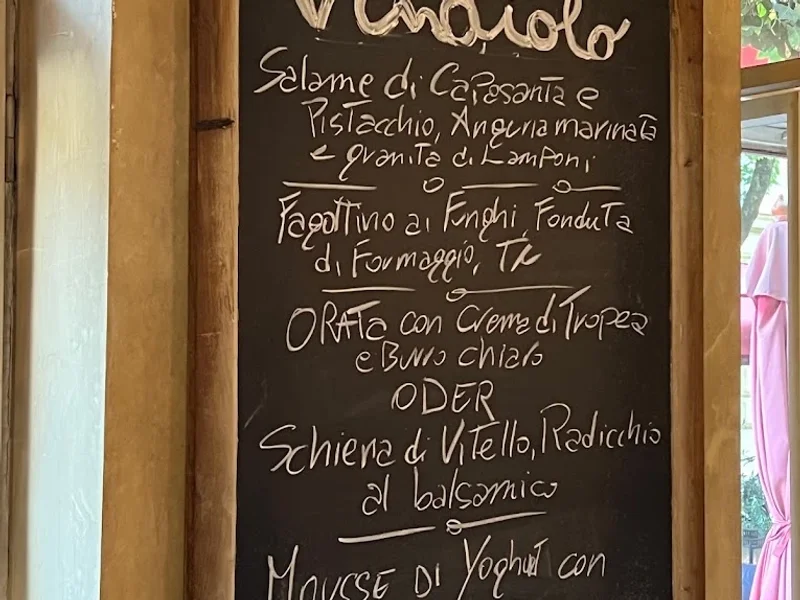 Salame di Capesante e
Pistacchio, Anguria marinata
e granita di Lamponi
Fagottino ai Funghi, Fonduta
di Formaggio,
ORATA con Crema di Tropea
e Burro chiaro
ODER
Schiena di Vitello, Radicchio
al balsamico
MOUSSE DI Yoghurt con